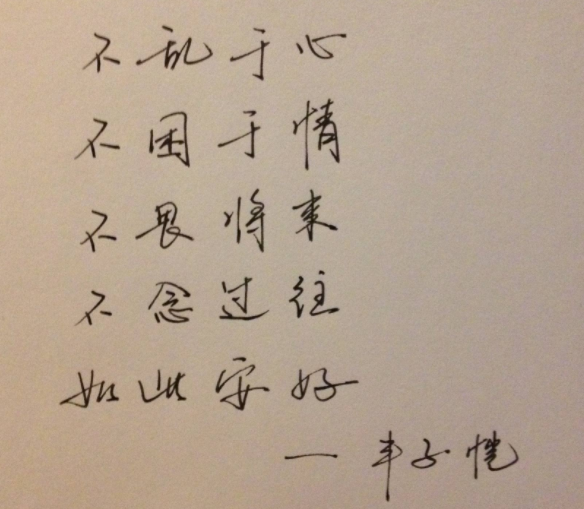 不乱于心
不困于情
不畏将来
不念过往
如此安好
一丰子恺